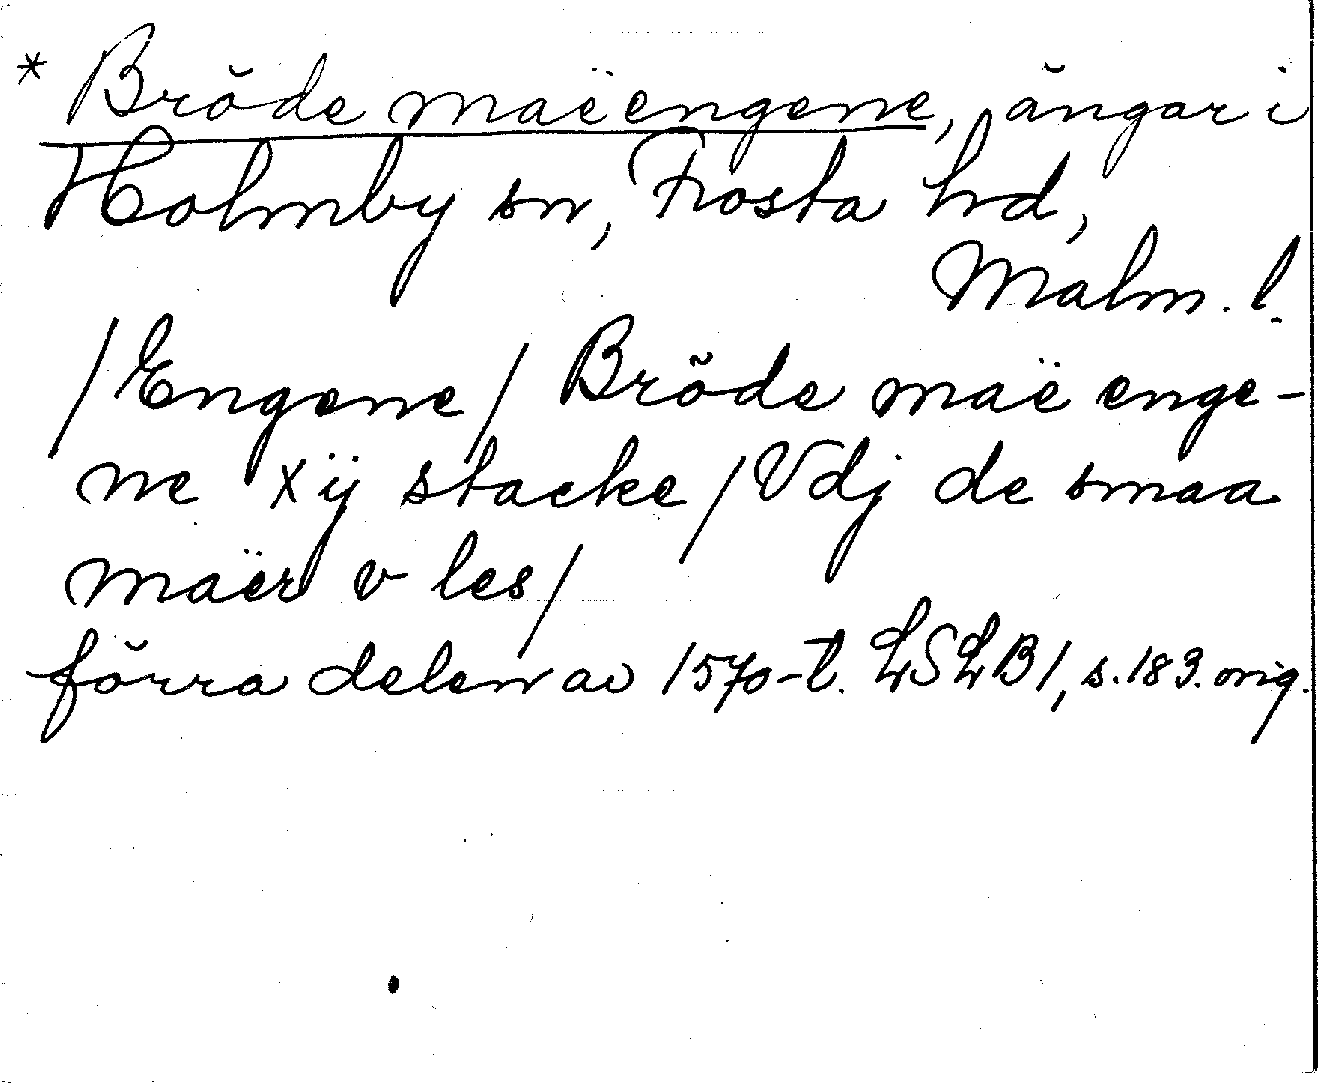 * Bröde maëengene, ängar i
Holmby sn, Frosta hd,
Malm. l.
/Engene/ Bröde maë enge-
ne xij stacke/Vdj de smaa
maër v les/
förra delen av 1570-t. LSLB1, s. 183. orig.